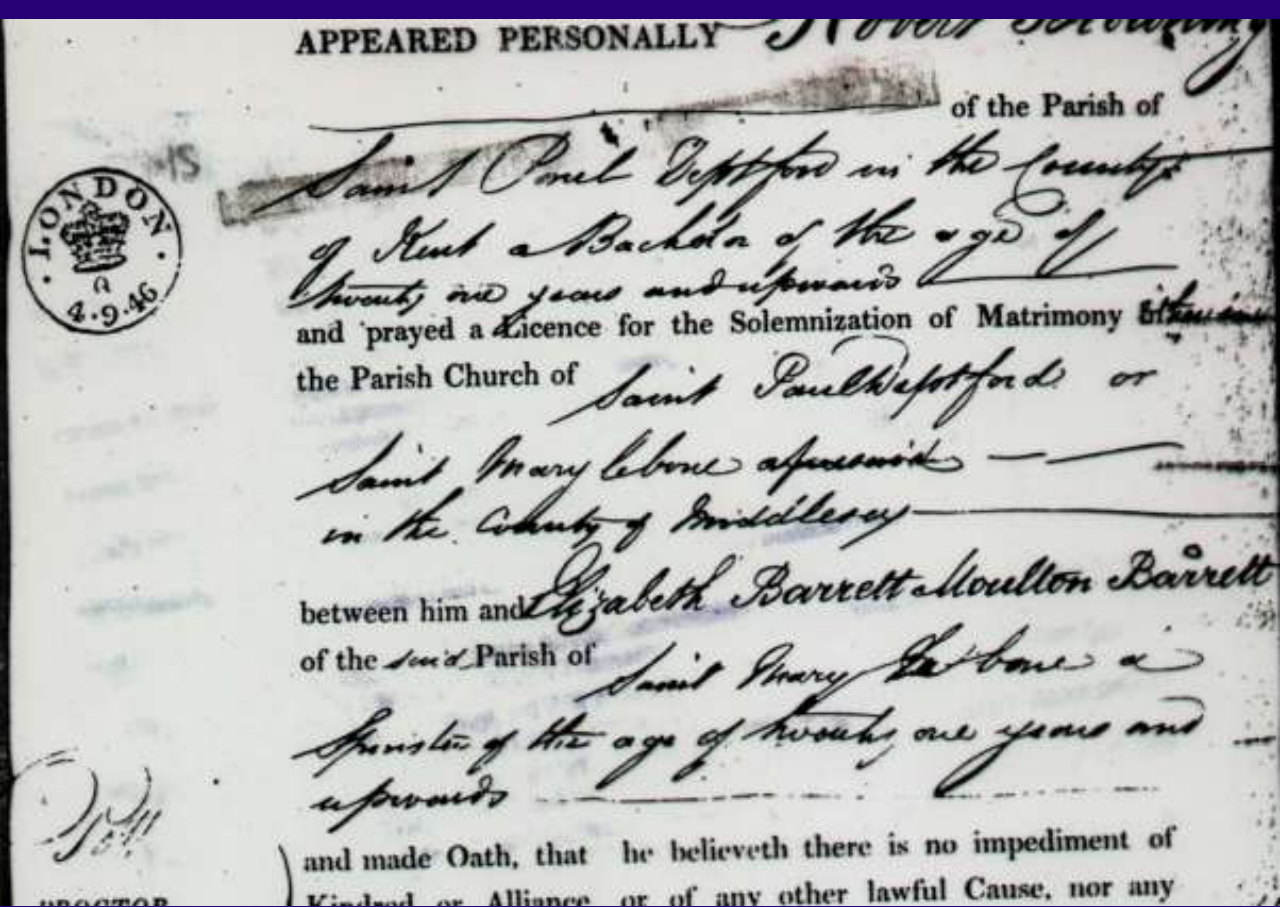 APPEARED PERSONALLY Robert Browning
of the Parish of
Saint Paul Deptford in the County
of Kent a Bachelor of the age of
twenty one years and upwards
and prayed a Licence for the Solemnization of Matrimony
the Parish Church of Saint Paul Deptford or
Saint Mary lebone aforesaid
in the County of Middlesex
between him and Elizabeth Barrett Moulton Barrett
of the said Parish of Saint Mary le bone a
Spinster of the age of twenty one years and
upwards
and made Oath, that he believeth there is no impediment of
Kindred or Alliance or of any other lawful Cause, nor any
LONDON
a
4.9.46
PROCTOR